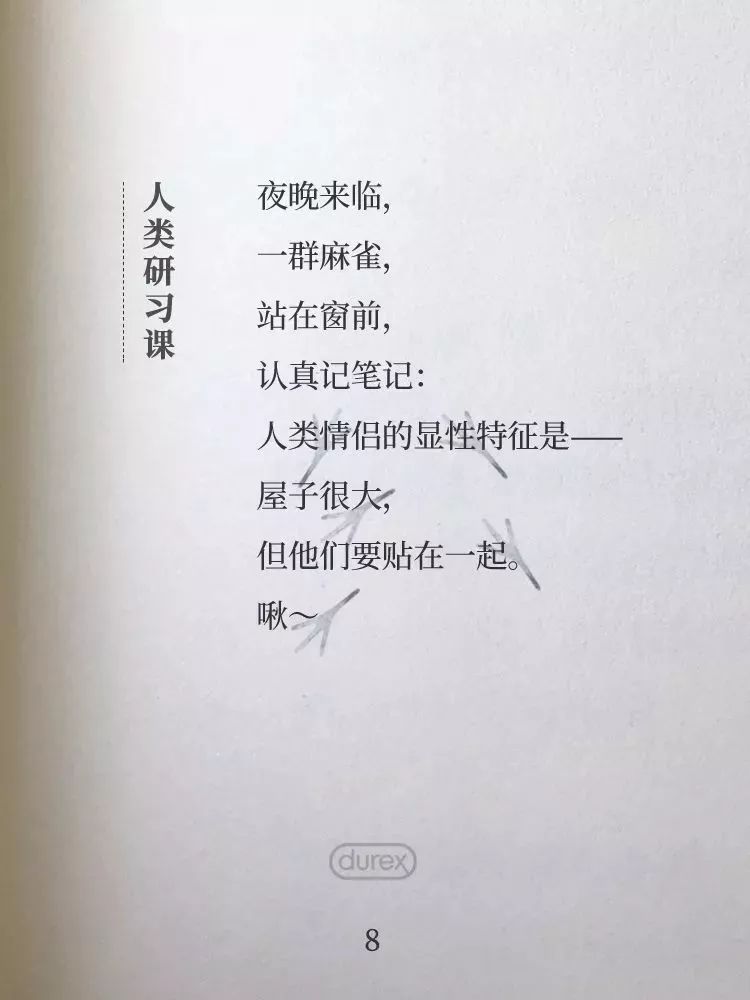 人类研习课
夜晚来临,
一群麻雀,
站在窗前,
认真记笔记:
人类情侣的显性特征是——
屋子很大,
但他们要贴在一起。
啾～
durex
8